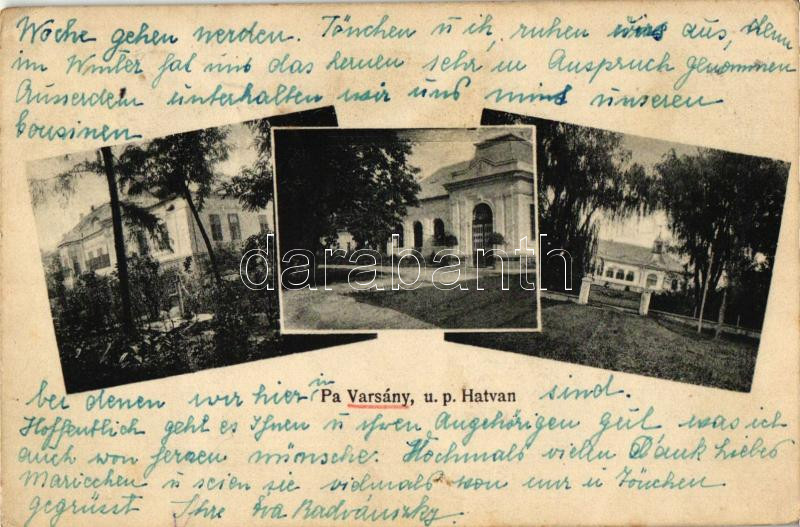 Woche gehen werden. Tönchen u ik, ruhen uns aus, denn
im Winter hat uns das lernen sehr in Anspruch genommen
Ausserdem unterhalten wir uns mit unseren
Cousinen
darabanth
bei denen wir hier in sind.
Pa Varsány, u. p. Hatvan
Hoffentlich geht es Ihnen u ihren Angehörigen gut was ich
auch von herzen wünsche. Hochmals vielen Dank Liebes
Mariechen u seien sie vielmals von mir u Tönchen
gegrüsst Ihre Eva Radvánszky.